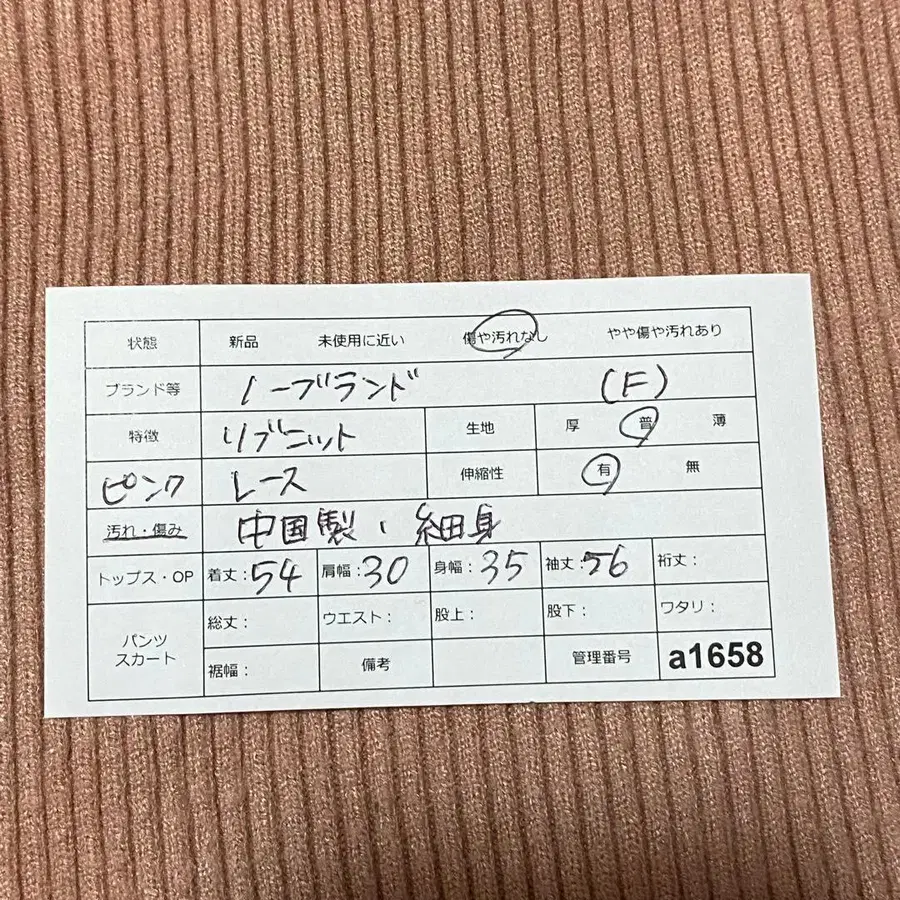 状態 新品 未使用に近い 傷や汚れなし やや傷や汚れあり
ブランド等 ノーブランド (F)
特徴 リブニット 生地 厚 普 薄
ピンク レース 伸縮性 有 無
汚れ・傷み 中国製、細身
トップス・OP 着丈:54 肩幅:30 身幅:35 袖丈:56 裄丈:
パンツ スカート 総丈: ウエスト: 股上: 股下: ワタリ:
裾幅: 備考 管理番号 a1658